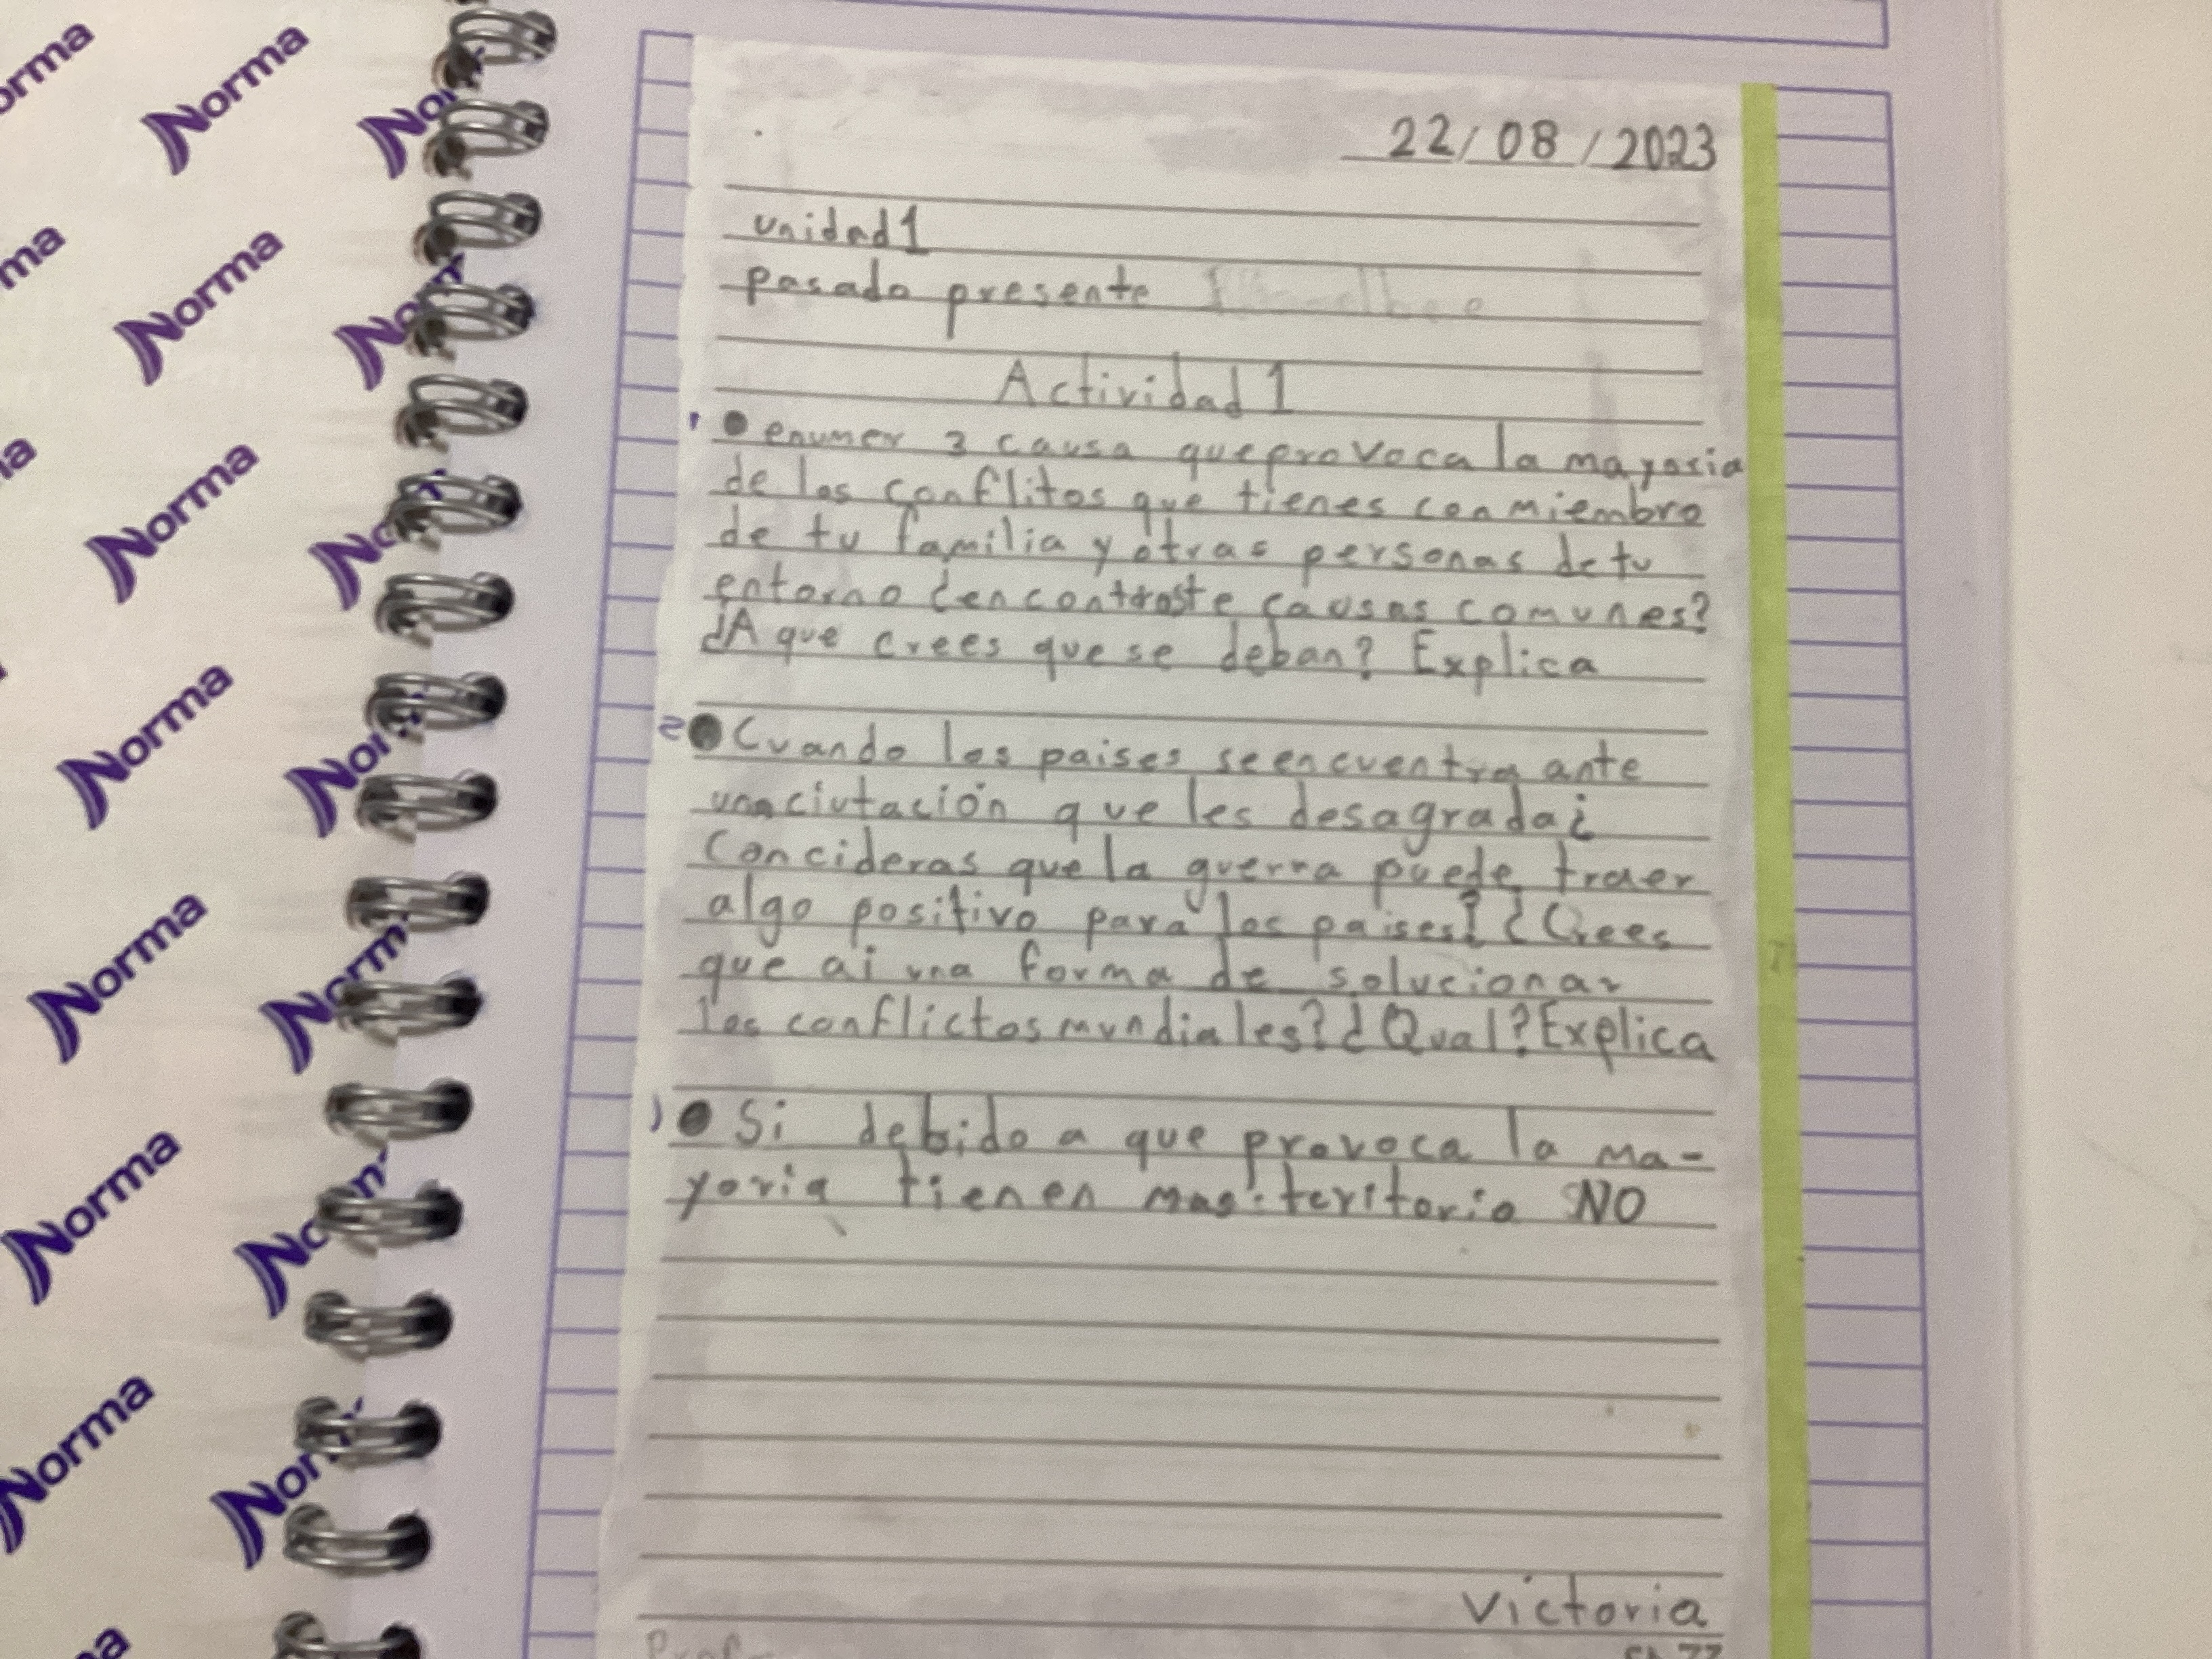 Norma
Norma
Norma
Norma
Norma
Norma
Norma
Norma
Norma
22/08/2023
unidad 1
pasado presente
Actividad 1
1 ● enumer 3 causa que provoca la mayoria
de los conflitos que tienes con miembro
de tu familia y otras personas de tu
entorno ¿encontraste causas comunes?
¿A que crees que se deban? Explica
2 ● Cuando los paises se encuentra ante
una ciutación que les desagrada¿
Concideras que la guerra puede traer
algo positivo para los paises? ¿Crees
que ai una forma de solucionar
los conflictos mundiales? ¿Qual? Explica
) ● Si debido a que provoca la ma-
yoria tienen mas teritorio NO
Victoria
Prof-